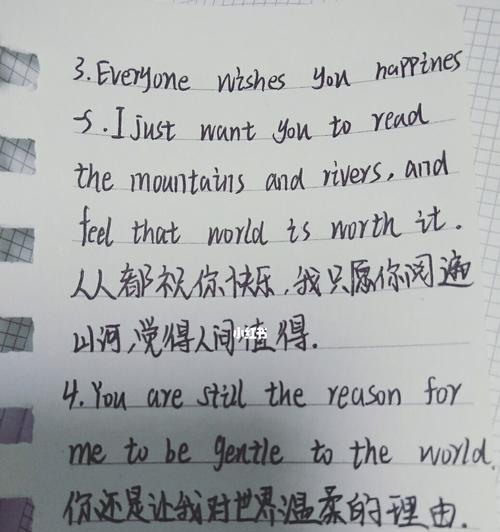 3. Everyone wishes you happines
s. I just want you to read
the mountains and rivers, and
feel that world is worth it.
人人都祝你快乐,我只愿你阅遍
山河,觉得人间值得.
小红书
4. You are still the reason for
me to be gentle to the world.
你还是让我对世界温柔的理由.